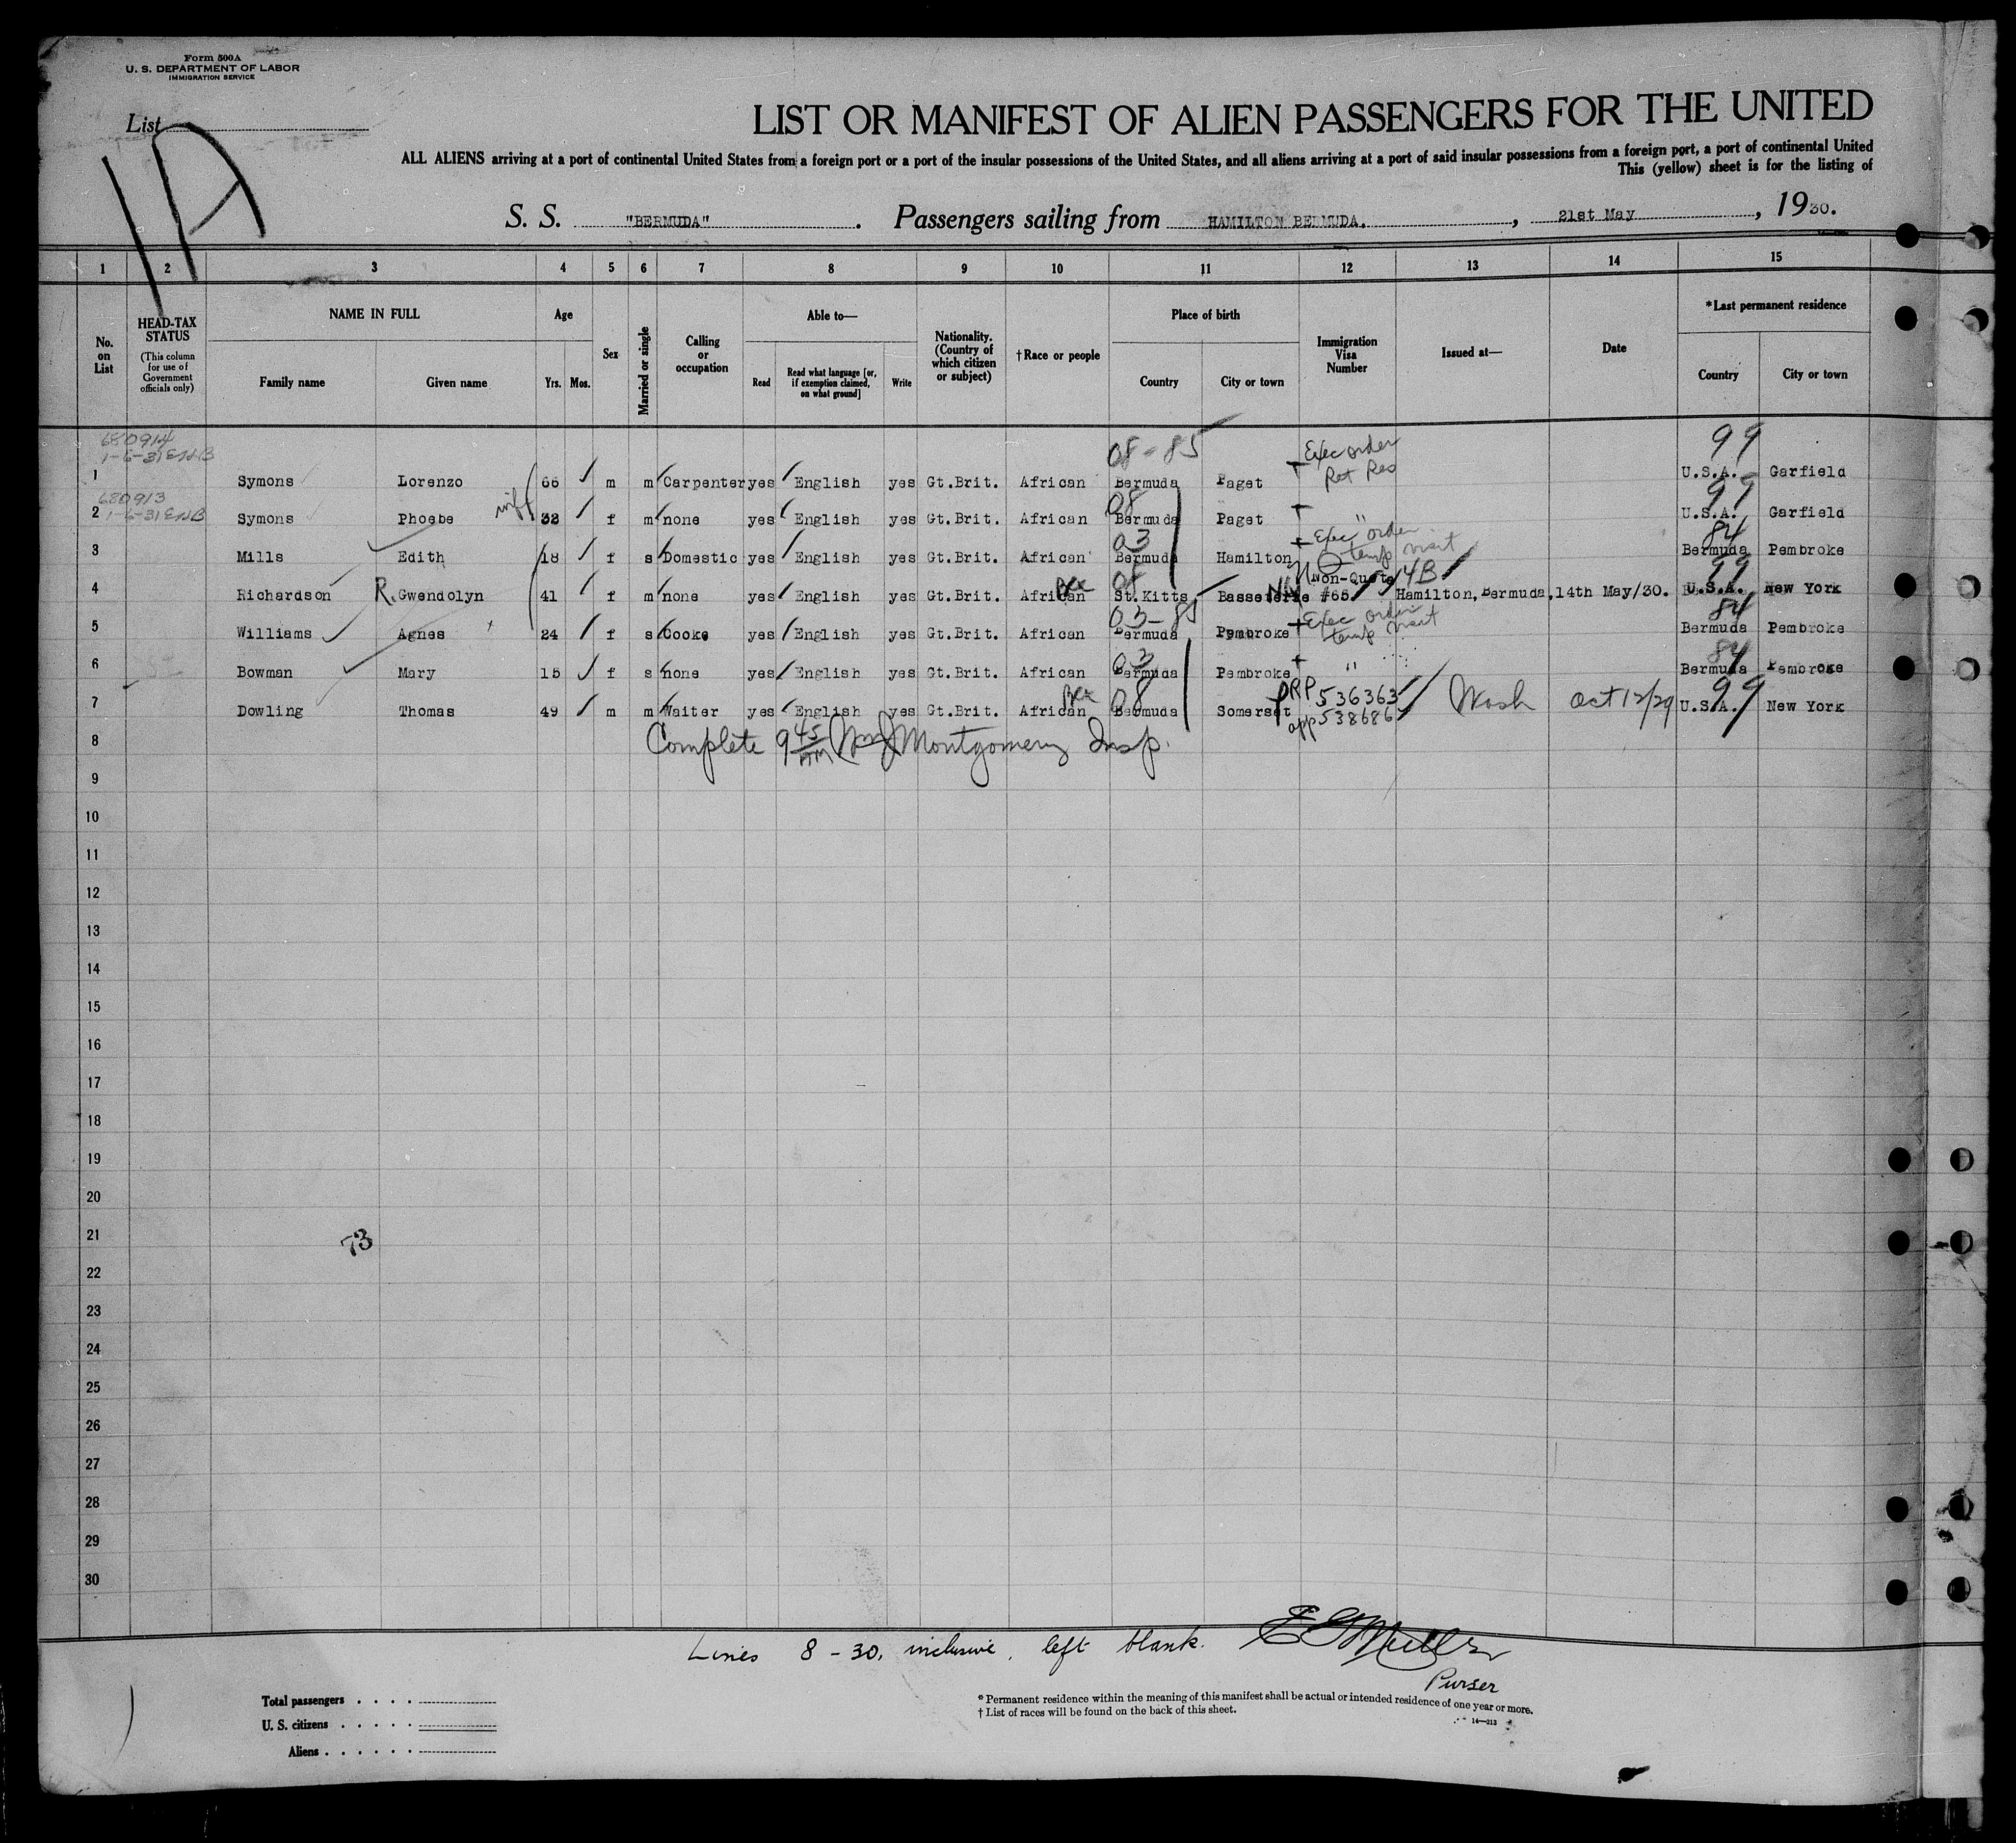 Form 500A
U. S. DEPARTMENT OF LABOR
IMMIGRATION SERVICE
List
1A
LIST OR MANIFEST OF ALIEN PASSENGERS FOR THE UNITED
ALL ALIENS arriving at a port of continental United States from a foreign port or a port of the insular possessions of the United States, and all aliens arriving at a port of said insular possessions from a foreign port, a port of continental United
This (yellow) sheet is for the listing of
S. S. "BERMUDA". Passengers sailing from HAMILTON BERMUDA., 21st May, 1930.
1 2 3 4 5 6 7 8 9 10 11 12 13 14 15
No. on List
HEAD-TAX STATUS
(This column for use of Government officials only)
NAME IN FULL
Family name Given name
Age
Yrs. Mos.
Sex
Married or single
Calling or occupation
Able to—
Read
Read what language [or, if exemption claimed, on what ground]
Write
Nationality. (Country of which citizen or subject)
†Race or people
Place of birth
Country City or town
Immigration Visa Number
Issued at—
Date
*Last permanent residence
Country City or town
680914
1-6-31 08-85 Exec order 99
1 Symons Lorenzo 66 m m Carpenter yes English yes Gt.Brit. African Bermuda Paget Ret Res U.S.A. Garfield
680913
1-6-31 wife 08 99
2 Symons Phoebe f m none yes English yes Gt.Brit. African Bermuda Paget " U.S.A. Garfield
03 Exec order 84
3 Mills Edith 18 f s Domestic yes English yes Gt.Brit. African Bermuda Hamilton temp visit Bermuda Pembroke
08 Non-Quota 4B 99
4 Richardson R. Gwendolyn 41 f m none yes English yes Gt.Brit. African St.Kitts Basseterre #65 Hamilton, Bermuda, 14th May/30. U.S.A. New York
03-85 Exec order 84
5 Williams Agnes 24 f s Cooke yes English yes Gt.Brit. African Bermuda Pembroke temp visit Bermuda Pembroke
03 84
6 Bowman Mary 15 f s none yes English yes Gt.Brit. African Bermuda Pembroke " Bermuda Pembroke
08 PRP 536363 99
7 Dowling Thomas 49 m m Waiter yes English yes Gt.Brit. African Bermuda Somerset app 538686 Wash Oct 12/29 U.S.A. New York
8 Complete 9 45 AM Montgomery Insp.
9
10
11
12
13
14
15
16
17
18
19
20
21
73
22
23
24
25
26
27
28
29
30
Lines 8 - 30, inclusive, left blank.
Purser
Total passengers
U. S. citizens
Aliens
* Permanent residence within the meaning of this manifest shall be actual or intended residence of one year or more.
† List of races will be found on the back of this sheet.
14—213